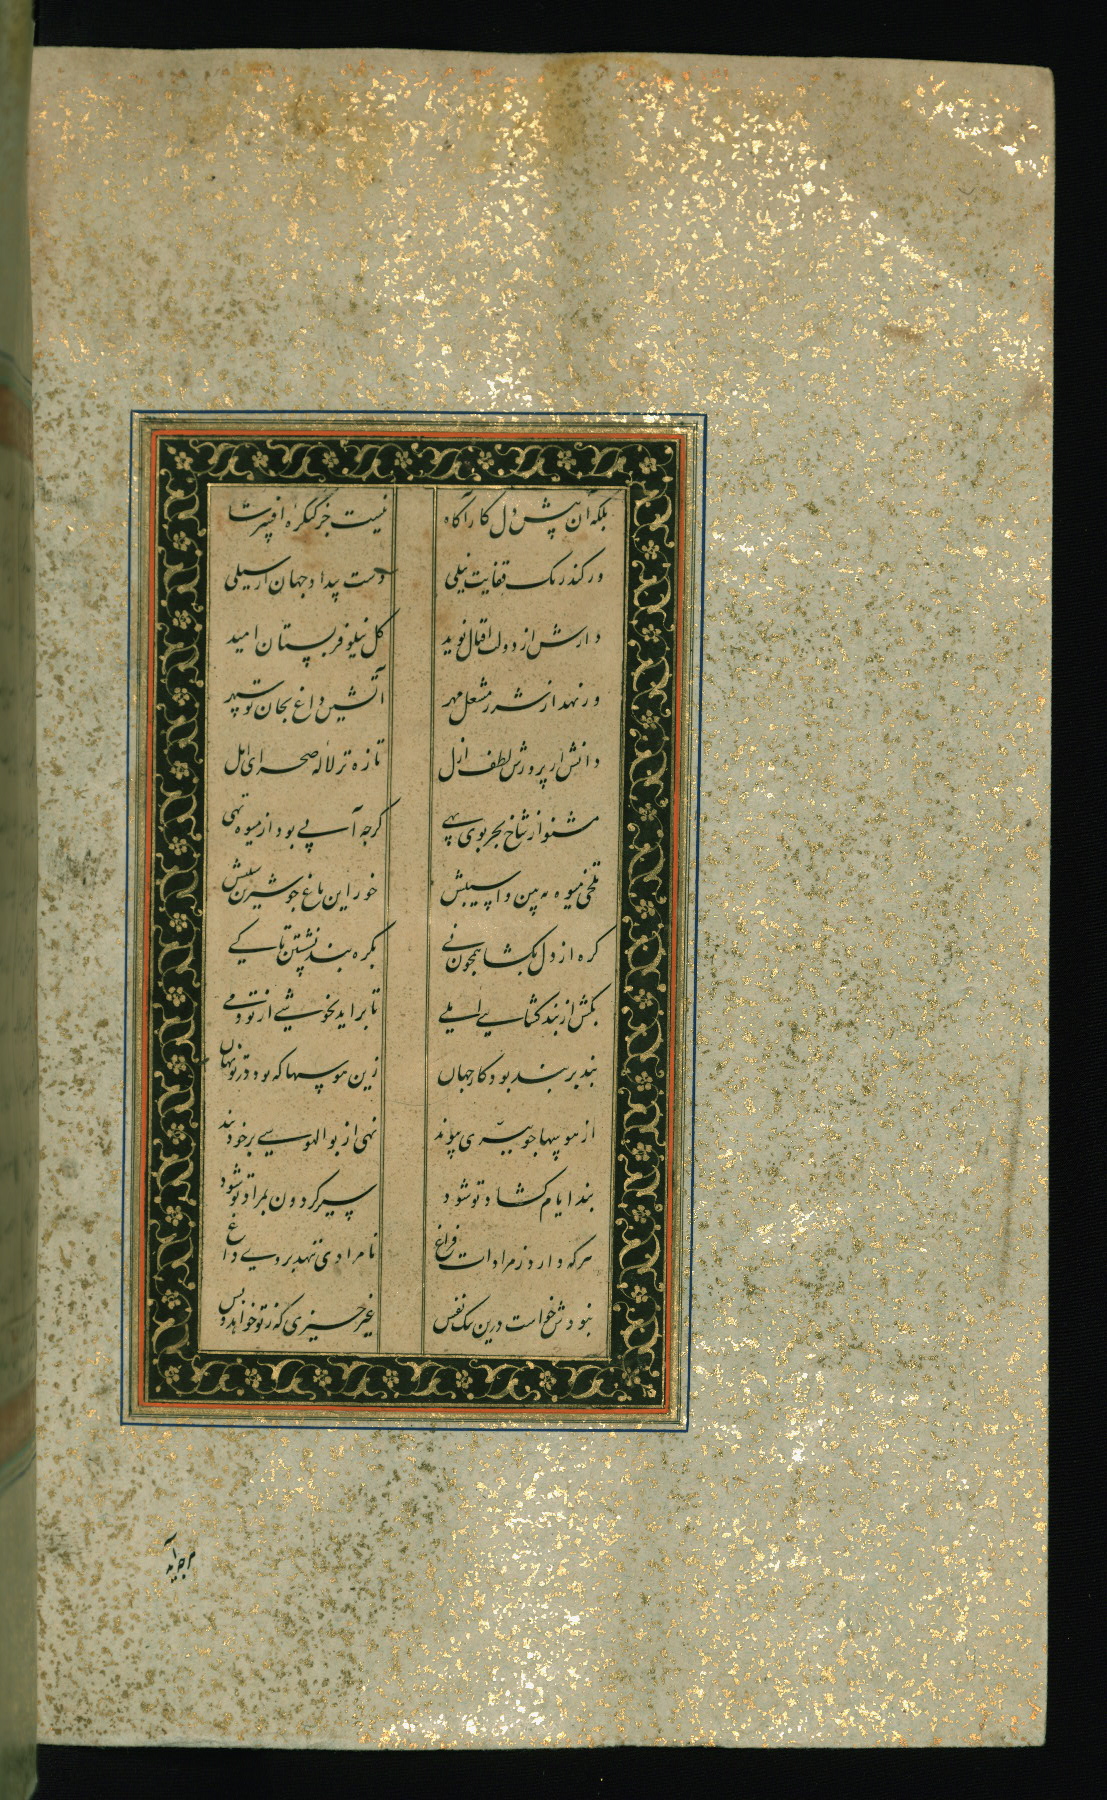 بلکه آن پیش دل کار آگاه نیست جز کنگره افسر شا
ور کند رنک قفایت نیلی دست پیداد جهان از سیلی
دارش از دولت اقبال نوید کل نیلوفر بستان امید
ور نهد از شرر مشعل مهر آتشین داغ بجان تو سپهر
دانش از پرورش لطف ازل تازه تر لاله صحرای امل
مشنو از شاخ بحر بوی بهی کرچه آسی بود از میوه تهی
تلخی میوه مبین واپسیش خور این باغ چو شیرین سیبش
کره از دل بکشا همچون نی بکره بند نشستن تا کی
بکش از بند کشایی المی تا براید بخوشی از تو دمی
بند بر بند بود کار جهان زین هوسها که بود در تو نهان
از هوسها چو ببری پیوند نهی از بوالهوسی بر خود بند
بند ایام کشاد تو شود سیر کردون بمراد تو شود
هر که دارد ز مرادات فراغ نامرادی ننهد بر وی داغ
نبودش خواست درین یک نفس غیر چیزی که ز تو خواهد و بس
هرچه آید